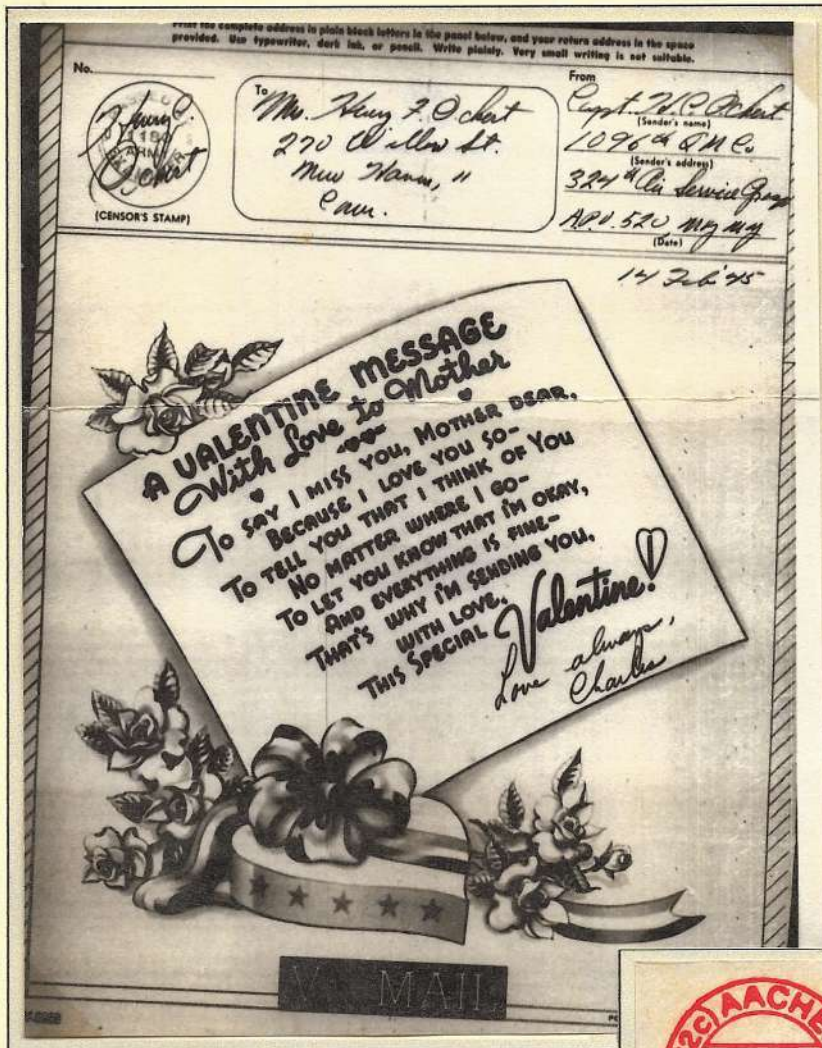 Print the complete address in plain block letters in the panel below, and your return address in the space
provided. Use typewriter, dark ink, or pencil. Write plainly. Very small writing is not suitable.
No.
To
From
Mrs. Henry F. Ochert
270 Willow St.
New Haven, 11
Conn.
Capt. H. C. Ochert
(Sender's name)
1096th QM Co
(Sender's address)
324th Air Service Group
A.P.O. 520, NY NY
(Date)
14 Feb '45
Henry C.
Ochert
(CENSOR'S STAMP)
A VALENTINE MESSAGE
With Love to Mother
TO SAY I MISS YOU, MOTHER DEAR,
BECAUSE I LOVE YOU SO-
TO TELL YOU THAT I THINK OF YOU
NO MATTER WHERE I GO-
TO LET YOU KNOW THAT I'M OKAY,
AND EVERYTHING IS FINE-
THAT'S WHY I'M SENDING YOU,
WITH LOVE,
THIS SPECIAL Valentine!
Love always,
Charles
V MAIL
AACHE